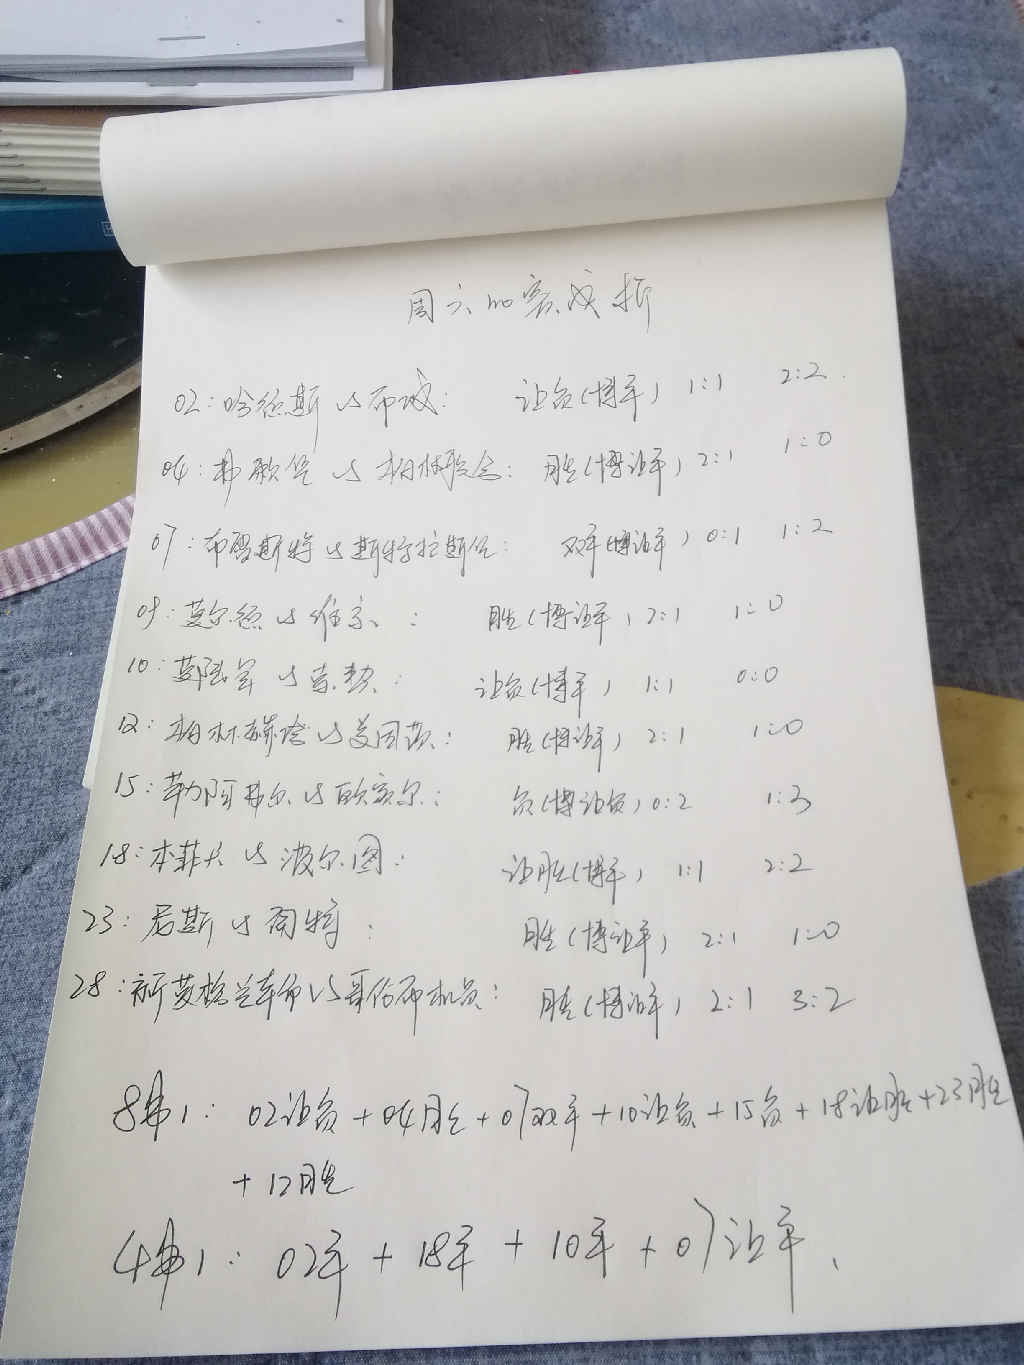 周六的赛成析
02:哈德斯 vs 布城: 让负(博平) 1:1 2:2
04:弗赖堡 vs 柏林联合: 胜(博让平) 2:1 1:0
07:布雷斯特 vs 斯特拉斯堡: 双平(博让平) 0:1 1:2
09:莫尔德 vs 维京: 胜(博让平) 2:1 1:0
10: vs : 让负(博平) 1:1 0:0
12:柏林赫塔 vs 美因茨: 胜(博让平) 2:1 1:0
15:勒阿弗尔 vs 欧塞尔: 负(博让负) 0:2 1:3
18:本菲卡 vs 波尔图: 让胜(博平) 1:1 2:2
23:尼斯 vs 南特: 胜(博让平) 2:1 1:0
28:新英格兰革命 vs 哥伦布机员: 胜(博让平) 2:1 3:2
8串1: 02让负+04胜+07双平+10让负+15负+18让胜+23胜
+12胜
4串1: 02平+18平+10平+07让平、